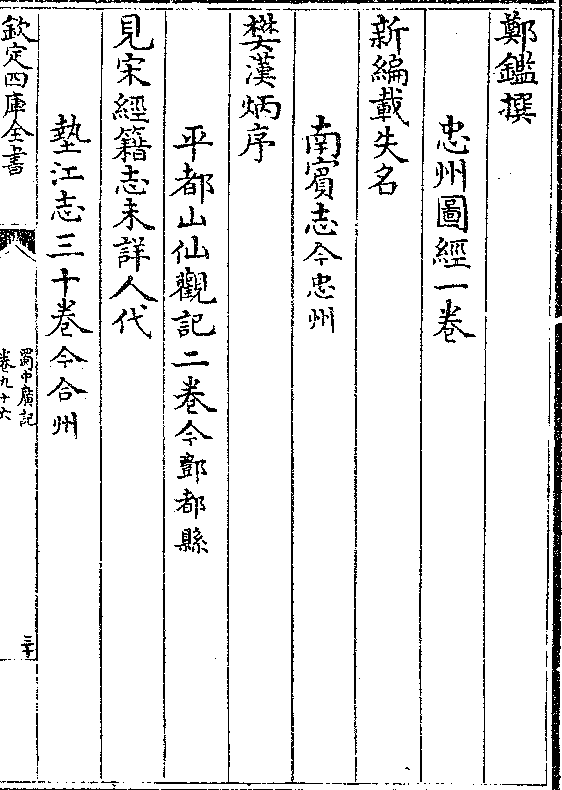 鄭鑑撰
忠州圖經一卷
新編載失名
南賓志今忠州
樊漢炳序
平都山仙觀記二卷今酆都縣
見宋經籍志未詳人代
墊江志三十卷今合州
欽定四庫全書
蜀中廣記
卷九十六
三十